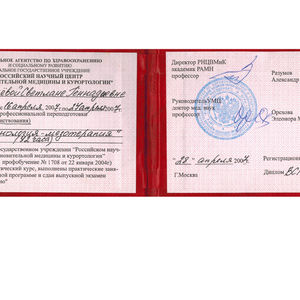 ЛЬНОЕ АГЕНТСТВО ПО ЗДРАВООХРАНЕНИЮ
И СОЦИАЛЬНОМУ РАЗВИТИЮ
ЛЬНОЕ ГОСУДАРСТВЕННОЕ УЧРЕЖДЕНИЕ
ОССИЙСКИЙ НАУЧНЫЙ ЦЕНТР
НОВИТЕЛЬНОЙ МЕДИЦИНЫ И КУРОРТОЛОГИИ"
Светлане Геннадьевне
16 апреля 2007 по 27 апреля 2007г.
профессиональной переподготовки
нствования)
мезотерапия"
осударственном учреждении "Российском науч-
новительной медицины и курортологии"
профобучение № 1708 от 22 января 2004г)
ический курс, выполнены практические заня-
й программе и сдан выпускной экзамен
Директор РНЦВМиК
академик РАМН
профессор
Разумов
Александр
Руководитель УМЦ
доктор мед. наук
профессор
Орехова
Элеонора М
28 апреля 2007
Г.Москва
Регистрацион
Диплом ВСГ